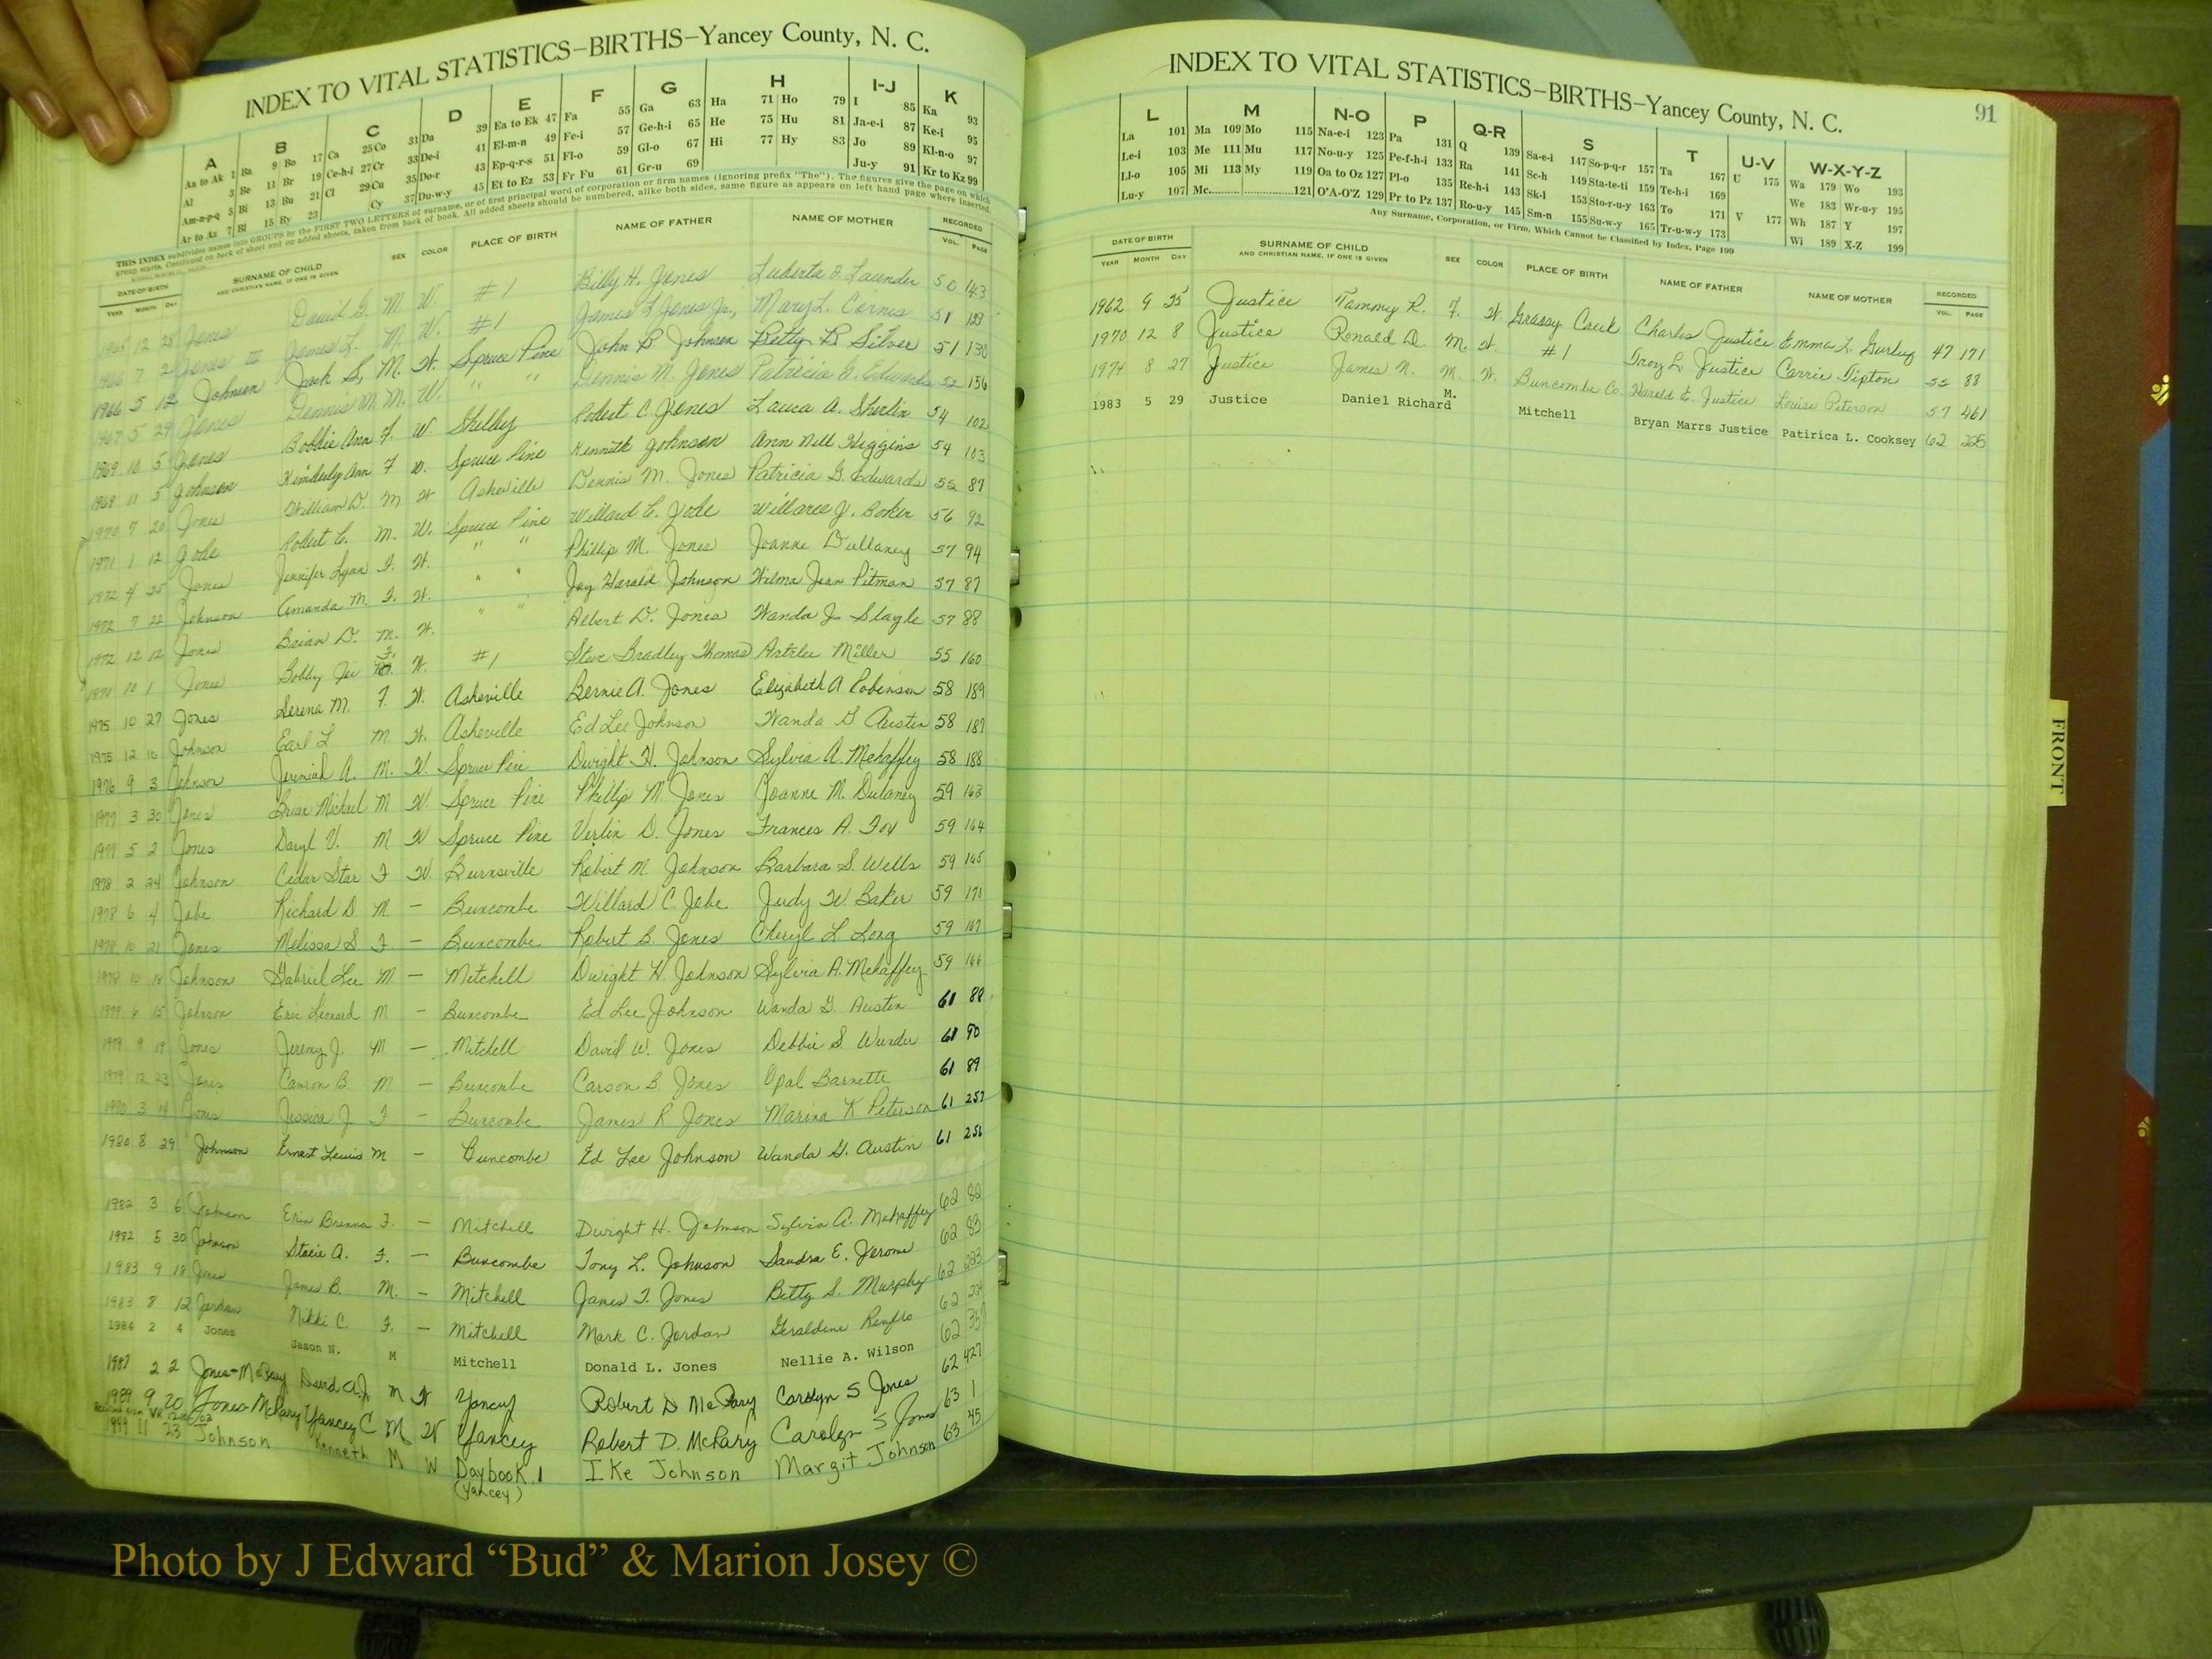 INDEX TO VITAL STATISTICS–BIRTHS–Yancey County, N. C.
A B C D E F G H I-J K
Aa to Ak 1 Ba 9 Bo 17 Ca 25 Co 31 Da 39 Ea to Ek 47 Fa 55 Ga 63 Ha 71 Ho 79 I 85 Ka 93
Al 3 Be 11 Br 19 Ce-h-i 27 Cr 33 De-i 41 El-m-n 49 Fe-i 57 Ge-h-i 65 He 75 Hu 81 Ja-e-i 87 Ke-i 95
Am-n-p-q 5 Bi 13 Bu 21 Cl 29 Cu 35 Do-r 43 Ep-q-r-s 51 Fl-o 59 Gl-o 67 Hi 77 Hy 83 Jo 89 Kl-n-o 97
Ar to Az 7 Bl 15 By 23 Cy 37 Du-w-y 45 Et to Ez 53 Fr Fu 61 Gr-u 69 Ju-y 91 Kr to Kz 99
THIS INDEX subdivides names into GROUPS by the FIRST TWO LETTERS of surname, or of first principal word of corporation or firm names (ignoring prefix "The"). The figures give the page on which
group starts. Continued on back of sheet and on added sheets, taken from back of book. All added sheets should be numbered, alike both sides, same figure as appears on left hand page where inserted.
DATE OF BIRTH SURNAME OF CHILD SEX COLOR PLACE OF BIRTH NAME OF FATHER NAME OF MOTHER RECORDED
YEAR MONTH DAY AND CHRISTIAN NAME, IF ONE IS GIVEN VOL. PAGE
12 28 Jones David G. M. W. #1 Billy H. Jones Launder 50 143
1966 7 2 Jones III James L. M. W. #1 James L Jones Jr., Mary L. 51 129
1966 5 12 Johnson Jack S, M. W. Spruce Pine John B Johnson Betty R Silver 51 130
1967 5 29 Jones Dennis M M. W. " " Dennis M. Jones Patricia G. Edwards 52 136
1969 10 5 Jones Bobbie Ann F. W. Shelby Robert C. Jones Laura A. Sherlin 54 102
1969 11 5 Johnson Kimberly Ann F W. Spruce Pine Kenneth Johnson Ann Nell Higgins 54 103
1970 7 20 Jones William D. M W Asheville Dennis M. Jones Patricia G. Edwards 55 87
1971 1 12 Jobe Robert C. M. W. Spruce Pine Willard C. Jobe J. Baker 56 92
1972 4 25 Jones Jennifer Lynn F. W. " " Phillip M. Jones Joanne Dullaney 57 94
1972 7 22 Johnson Amanda M. F. W. " " Jay Harold Johnson Wilma Jean Pitman 57 87
1972 12 12 Jones Brian D. M. W. " " Albert D. Jones Wanda J. Slagle 57 88
1970 10 1 Jones Bobby F. W. #1 Steve Bradley Thomas Miller 55 160
1975 10 27 Jones Serena M. F. W. Asheville Bernie A. Jones Elizabeth A Robinson 58 189
1975 12 16 Johnson Earl L M W. Asheville Ed Lee Johnson Wanda G Austin 58 187
1976 9 3 Johnson Jeremiah A. M. W. Spruce Pine Dwight H. Johnson Sylvia A. Mehaffey 58 188
1977 3 30 Jones Brian Michael M W. Spruce Pine Phillip M. Jones Joanne M. Dulaney 59 163
1977 5 2 Jones Daryl V. M W Spruce Pine Verlin D. Jones Frances A. Fox 59 164
1978 2 24 Johnson Cedar Star F W Burnsville Robert M. Johnson Barbara S. Wells 59 165
1978 6 4 Jobe Richard D M – Buncombe Willard C Jobe Judy W Baker 59 171
1978 10 21 Jones Melissa S F – Buncombe Robert B. Jones Cheryl L Long 59 167
1978 10 18 Johnson Gabriel Lee M – Mitchell Dwight H. Johnson Sylvia A. Mehaffey 59 166
1979 6 15 Johnson Eric Leonard M – Buncombe Ed Lee Johnson Wanda G Austin 61 88
1979 9 19 Jones Jeremy J. M – Mitchell David W. Jones Debbie S. Wunder 61 90
1979 12 23 Jones B. M – Buncombe Carson B. Jones Opal Barnette 61 89
1980 3 14 Jones Jessica J. F – Buncombe James R Jones Marina K Peterson 61 257
1980 8 29 Johnson Ernest Lewis M – Buncombe Ed Lee Johnson Wanda G. Austin 61 256
1982 3 6 Johnson Erin Brenna F. – Mitchell Dwight H. Johnson Sylvia A. Mehaffey 62 82
1982 5 30 Johnson Stacie A. F. – Buncombe Tony L. Johnson Sandra E. Jerome 62 83
1983 9 18 Jones James B. M. – Mitchell James T. Jones Betty S. Murphy 62 223
1983 8 12 Jordan Nikki C. F. – Mitchell Mark C. Jordan Geraldine Renfro 62 224
1984 2 4 Jones Jason N. M Mitchell Donald L. Jones Nellie A. Wilson 62
1987 2 2 Jones-McRary David A.J. M W Yancey Robert D McRary Carolyn S Jones 62 427
1989 9 20 Jones-McRary Yancey C M W Yancey Robert D. McRary Carolyn S Jones 63 1
11 23 Johnson Kenneth M W Daybook 1 Ike Johnson Margit Johnson 63 45
(Yancey)
INDEX TO VITAL STATISTICS–BIRTHS–Yancey County, N. C. 91
L M N-O P Q-R S T U-V W-X-Y-Z
La 101 Ma 109 Mo 115 Na-e-i 123 Pa 131 Q 139 Sa-e-i 147 So-p-q-r 157 Ta 167 U 175 Wa 179 Wo 193
Le-i 103 Me 111 Mu 117 No-u-y 125 Pe-f-h-i 133 Ra 141 Sc-h 149 Sta-te-ti 159 Te-h-i 169 We 183 Wr-u-y 195
Ll-o 105 Mi 113 My 119 Oa to Oz 127 Pl-o 135 Re-h-i 143 Sk-l 153 Sto-r-u-y 163 To 171 V 177 Wh 187 Y 197
Lu-y 107 Mc 121 O'A-O'Z 129 Pr to Pz 137 Ro-u-y 145 Sm-n 155 Su-w-y 165 Tr-u-w-y 173 Wi 189 X-Z 199
Any Surname, Corporation, or Firm, Which Cannot be Classified by Index, Page 199
DATE OF BIRTH SURNAME OF CHILD SEX COLOR PLACE OF BIRTH NAME OF FATHER NAME OF MOTHER RECORDED
YEAR MONTH DAY AND CHRISTIAN NAME, IF ONE IS GIVEN VOL. PAGE
1962 9 25 Justice Tammy R. F. W. Grassy Creek Charles Justice Emma L. 47 171
1970 12 8 Justice Ronald D M. W. #1 Troy L. Justice Carrie Tipton 55 88
1974 8 27 Justice James N. M. W. Buncombe Co. Harold E. Justice Louise Peterson 57 461
1983 5 29 Justice Daniel Richard M. Mitchell Bryan Marrs Justice Patirica L. Cooksey 62 225
FRONT
Photo by J Edward “Bud” & Marion Josey ©